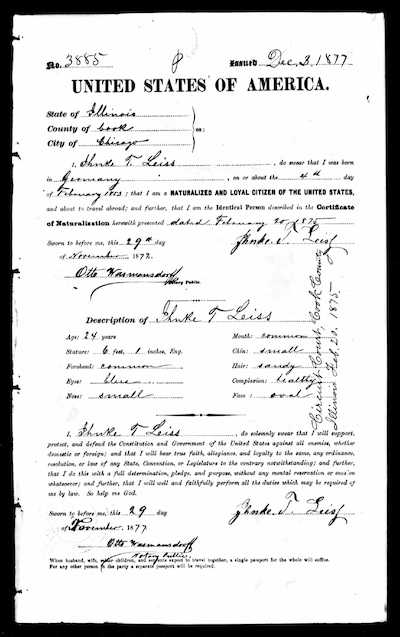 No. 3885 8 Issued Dec. 3. 1877
UNITED STATES OF AMERICA.
State of Illinois
County of Cook ss:
City of Chicago
I, Ihnke T. Leiss, do swear that I was born
in Germany, on or about the 4th day
of February 1853; that I am a NATURALIZED AND LOYAL CITIZEN OF THE UNITED STATES,
and about to travel abroad; and further, that I am the Identical Person described in the Certificate
of Naturalization herewith presented dated February 20, 1875
Sworn to before me, this 29th day Ihnke. T. Leiss
of November 1877.
Otto Wasmansdorff
Notary Public.
Circuit Court Cook County
Illinois Feb. 20. 1875.
Description of Ihnke T Leiss
Age: 24 years Mouth: common
Stature: 6 feet, 1 inches, Eng. Chin: small
Forehead: common Hair: sandy
Eyes: blue Complexion: healthy
Nose: small Face: oval
I, Ihnke T. Leiss, do solemnly swear that I will support,
protect, and defend the Constitution and Government of the United States against all enemies, whether
domestic or foreign; and that I will bear true faith, allegiance, and loyalty to the same, any ordinance,
resolution, or law of any State, Convention, or Legislature to the contrary notwithstanding; and further,
that I do this with a full determination, pledge, and purpose, without any mental reservation or evasion
whatsoever; and further, that I will well and faithfully perform all the duties which may be required of
me by law. So help me God.
Sworn to before me, this 29 day Ihnke. T. Leiss
of November 1877
Otto Wasmansdorff
Notary Public.
When husband, wife, minor children, and servants expect to travel together, a single passport for the whole will suffice.
For any other person in the party a separate passport will be required.